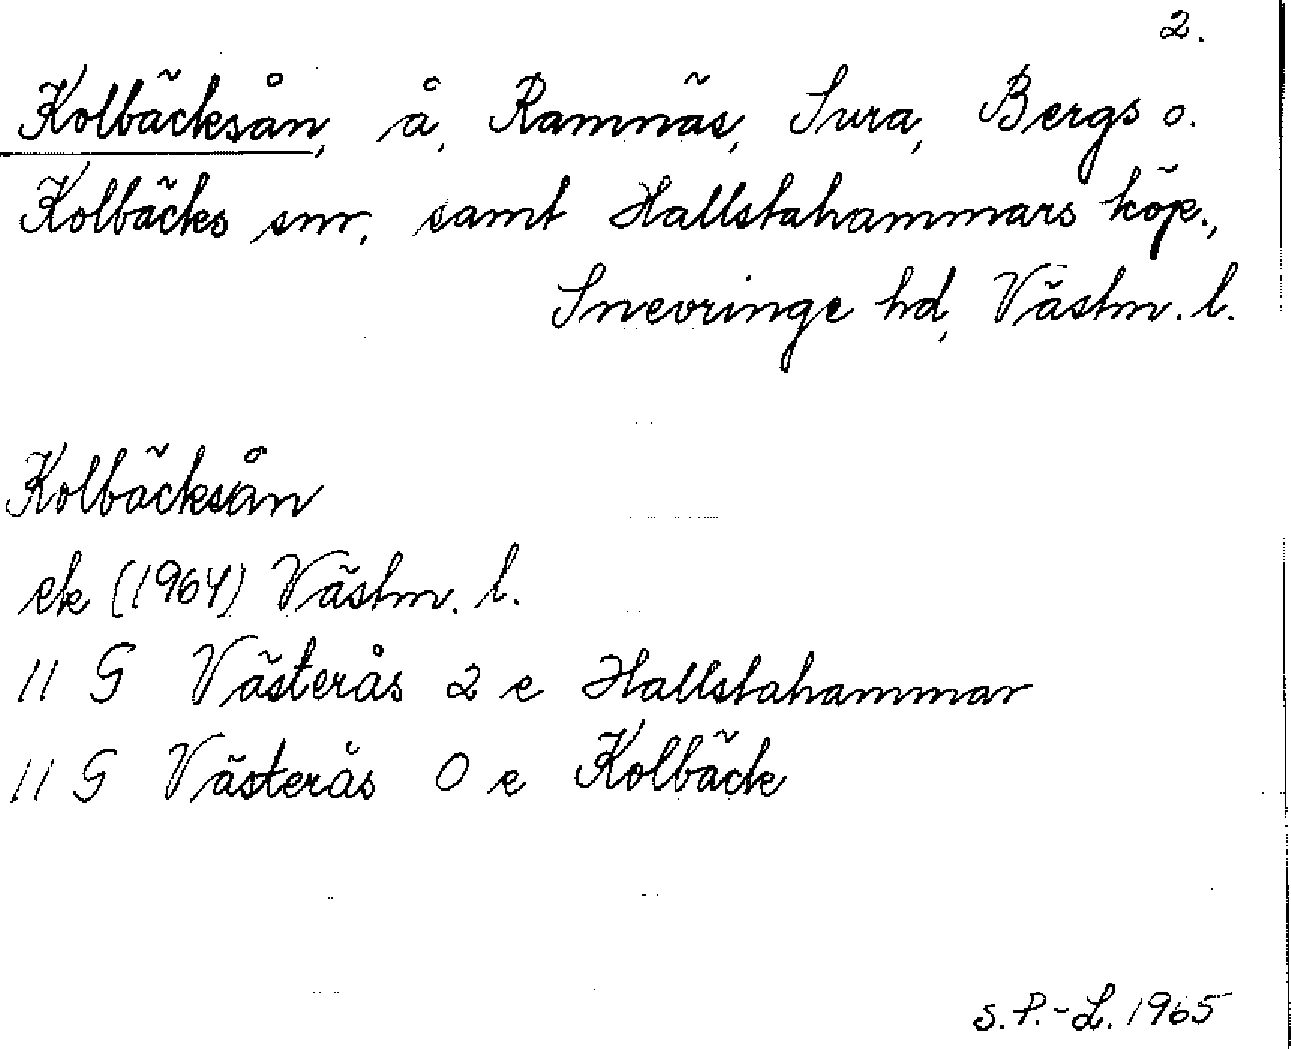 2.
Kolbäcksån, å, Ramnäs, Sura, Bergs o.
Kolbäcks snr, samt Hallstahammars köp.,
Snevringe hd, Västm. l.
Kolbäcksån
ek (1964) Västm. l.
11 G Västerås 2 e Hallstahammar
11 G Västerås 0 e Kolbäck
S. P.-L. 1965